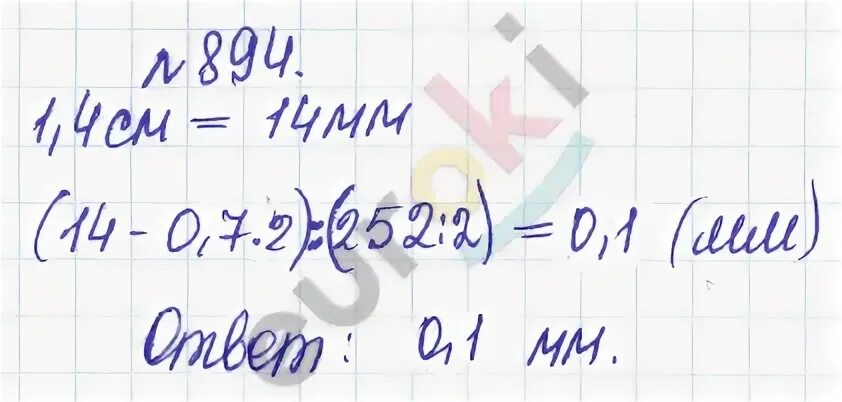 № 894.
1,4 см = 14 мм
(14 - 0,7·2):(252:2) = 0,1 (мм)
Ответ: 0,1 мм.
euroki